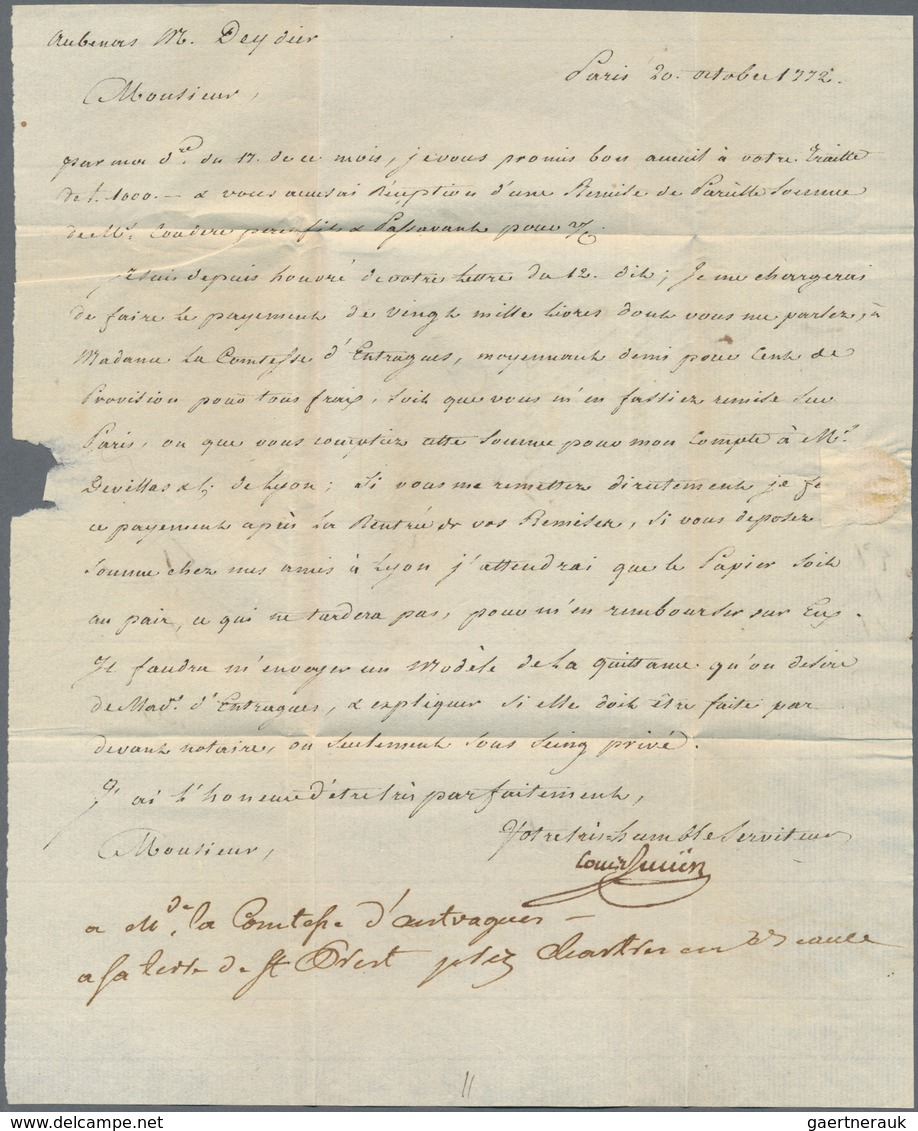 Aubenas M. Deydier
Paris 20. octobre 1772.
Monsieur,
par ma d.re du 17. de ce mois, je vous promis bon accueil à votre Traitte
de £. 1000.— & vous accusai Réception d'une Remise de Pareille Somme
de Mrs. Couderc pere fils & Passavant pour v/C.
Je suis depuis honoré de votre Lettre du 12. dit; Je me chargerai
de faire le payement de vingt mille livres dont vous me parlez, à
Madame La Comtesse d'Entragues, moyennant demi pour Cent de
Provision pour tous fraix, soit que vous m'en fassiez remise sur
Paris, ou que vous comptiez cette Somme pour mon Compte à Mrs.
Devillas & C. de Lyon; Si vous me remettez directement je fe
ce payement après La Rentrée de vos Remises, si vous deposez
Somme chez mes amis à Lyon j'attendrai que le Papier soit
au pair, ce qui ne tardera pas, pour m'en rembourser sur Eux.
Il faudra m'envoyer un Modèle de La quittance qu'on desire
de Mad.e d'Entragues, & expliquer si elle doit être faite par
devant notaire, ou seulement sous seing privé.
J'ai l'honeur d'etre très parfaitement,
Monsieur,
Votre très humble Serviteur
a Mde. la Comtesse d'antragues —
a sa terre de St Prest près Chartres en Beauce
11
gaertnerauk